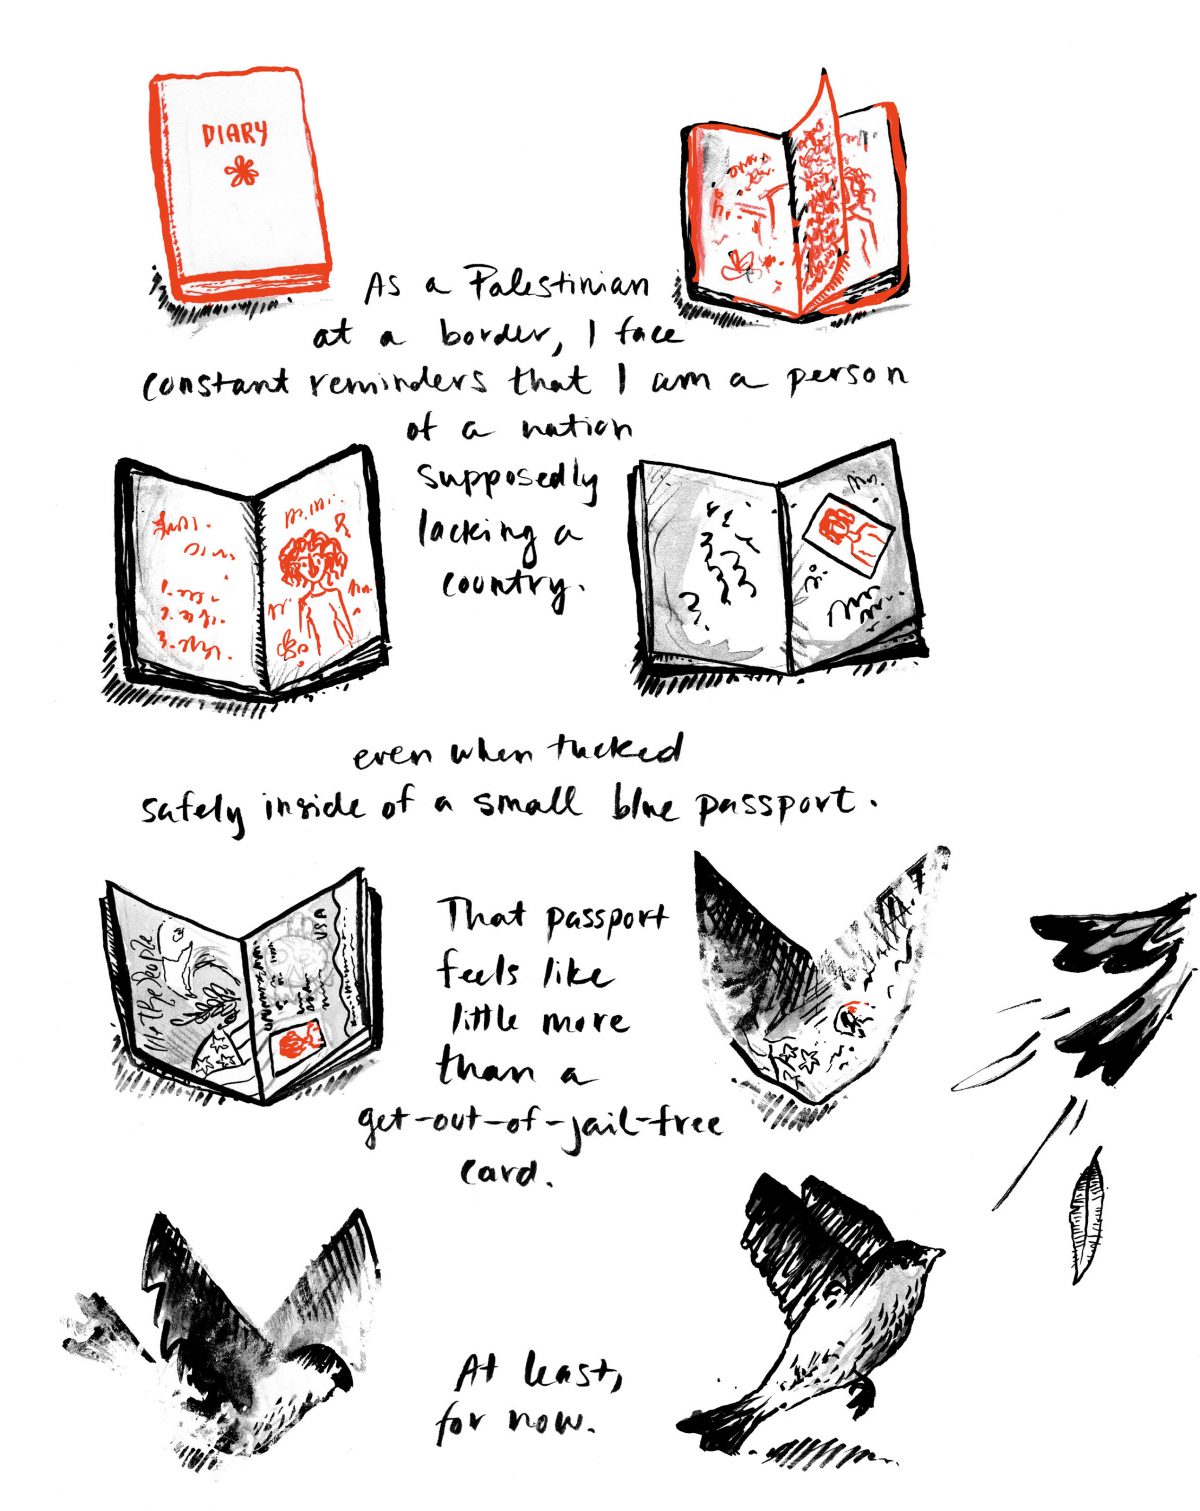 DIARY
As a Palestinian
at a border, I face
constant reminders that I am a person
of a nation
supposedly
lacking a
country.
even when tucked
safely inside of a small blue passport.
We the People
USA
That passport
feels like
little more
than a
get-out-of-jail-free
card.
At least,
for now.